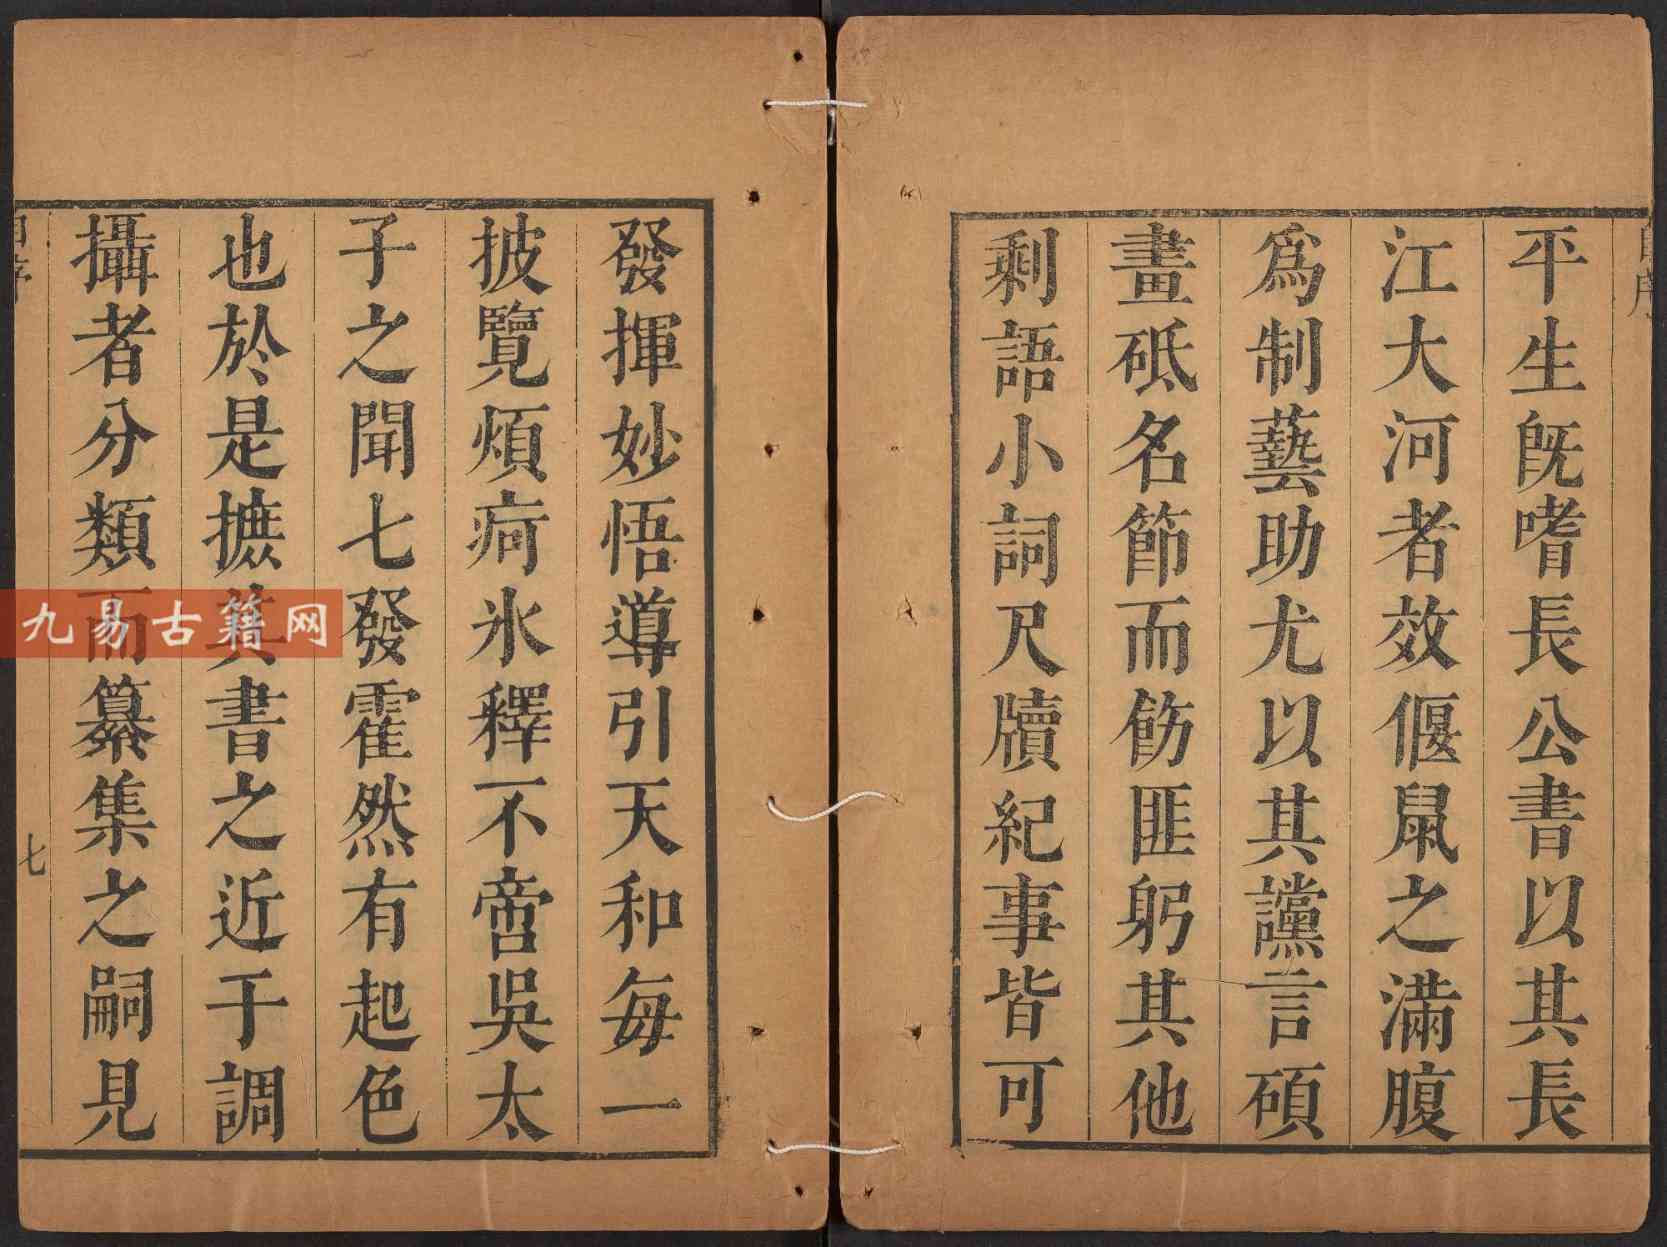 平生旣嗜長公書以其長
江大河者效偃鼠之滿腹
爲制藝助尤以其讜言碩
畫砥名節而飭匪躬其他
剩語小詞尺牘紀事皆可
發揮妙悟導引天和每一
披覽煩疴氷釋不啻吳太
子之聞七發霍然有起色
也於是摭其書之近于調
攝者分類而纂集之嗣見
七
九易古籍网